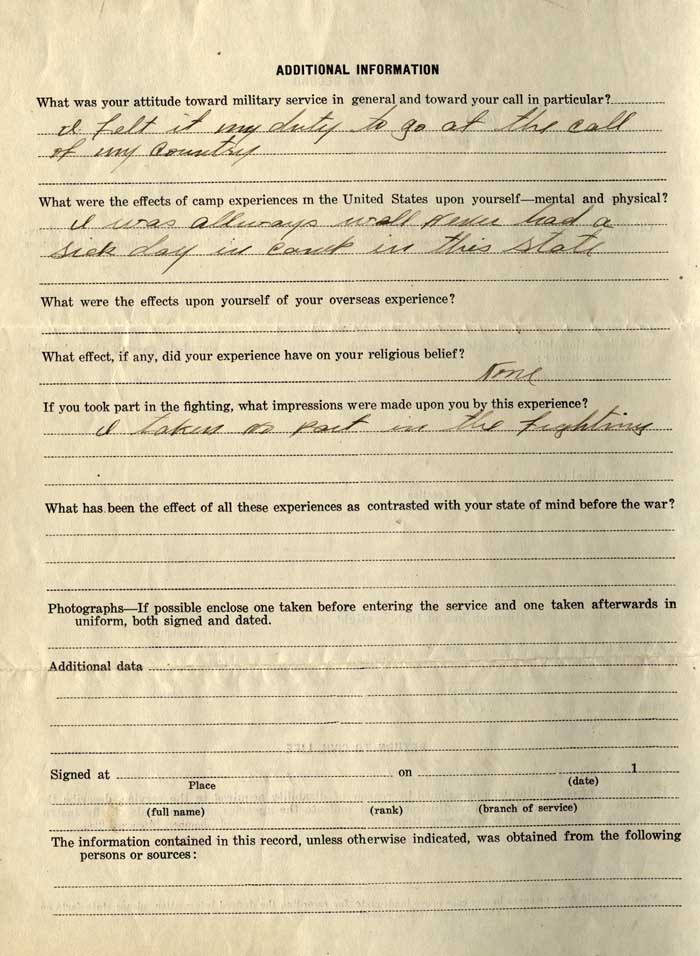 ADDITIONAL INFORMATION
What was your attitude toward military service in general and toward your call in particular?
I felt it my duty to go at the call
of my country
What were the effects of camp experiences in the United States upon yourself—mental and physical?
I was allways well never had a
sick day in camp in this state
What were the effects upon yourself of your overseas experience?
What effect, if any, did your experience have on your religious belief?
None
If you took part in the fighting, what impressions were made upon you by this experience?
I taken no part in the fighting
What has been the effect of all these experiences as contrasted with your state of mind before the war?
Photographs—If possible enclose one taken before entering the service and one taken afterwards in
uniform, both signed and dated.
Additional data
Signed at on 1
Place (date)
(full name) (rank) (branch of service)
The information contained in this record, unless otherwise indicated, was obtained from the following
persons or sources: